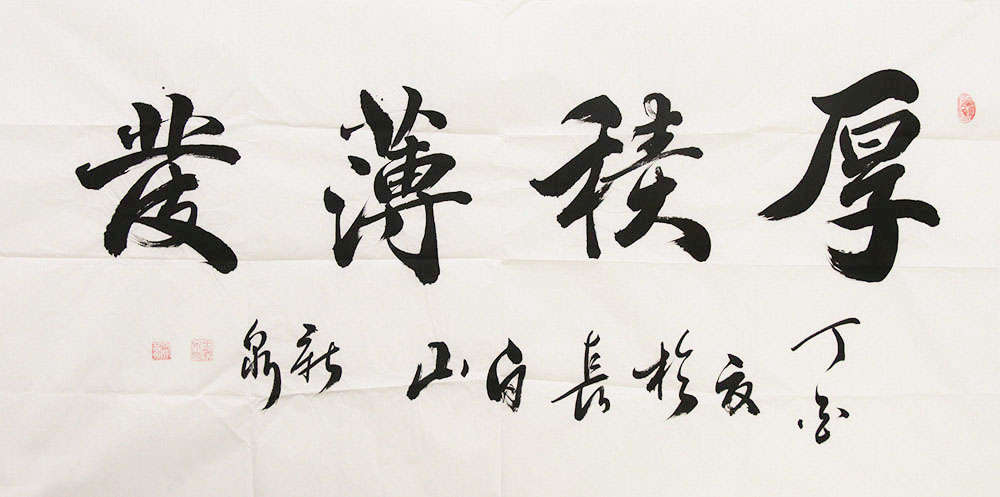 厚積薄發
丁酉夏於長白山新泉